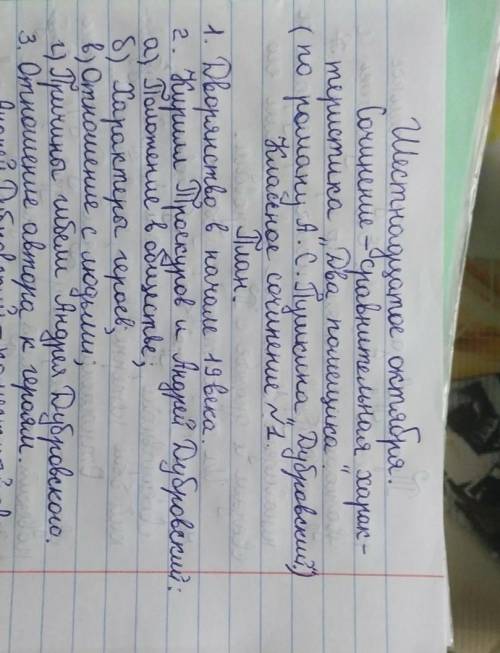 Шестнадцатое октября.
Сочинение-сравнительная харак-
теристика „Два помещика"
(по роману А. С. Пушкина „Дубровский")
Классное сочинение №1.
План.
1. Дворянство в начале 19 века.
2. Кирилл Троекуров и Андрей Дубровский:
а) Положение в обществе;
б) Характера героев;
в) Отношение с людьми;
г) Причины гибели Андрея Дубровского.
3. Отношение автора к героям.